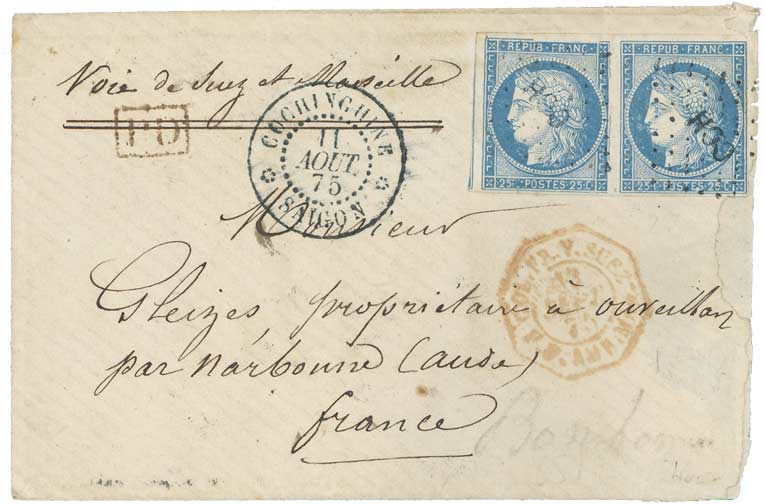 REPUB·FRANC· REPUB·FRANC·
25c·POSTES·25c· 25c·POSTES·25c·
Voie de Suez et Marseille
PD
COCHINCHINE
11
AOUT.
75
SAIGON
Monsieur
Gleizes, propriétaire à ouveillan
par narbonne (aude)
france
V. SUEZ
AMB.